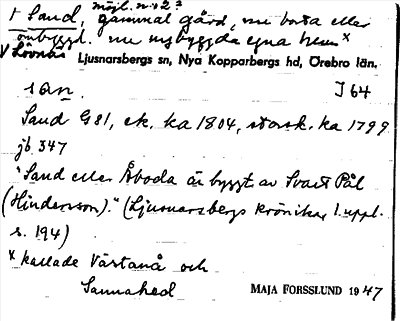 möjl. nr 2?
† Sand, gammal gård, nu borta eller
ombyggd. nu nybyggda egna hem x
V Lövnäs Ljusnarsbergs sn, Nya Kopparbergs hd, Örebro län.
san. J 64
Sand G 81, ek. ka 1804, storsk. ka 1799
jb 347
"Sand eller Åboda är byggt av Svart Pål
(Hindersson)." (Ljusnarsbergs krönika, 1. uppl.
s. 194)
x kallade Västanå och
Sannahed MAJA FORSSLUND 1947